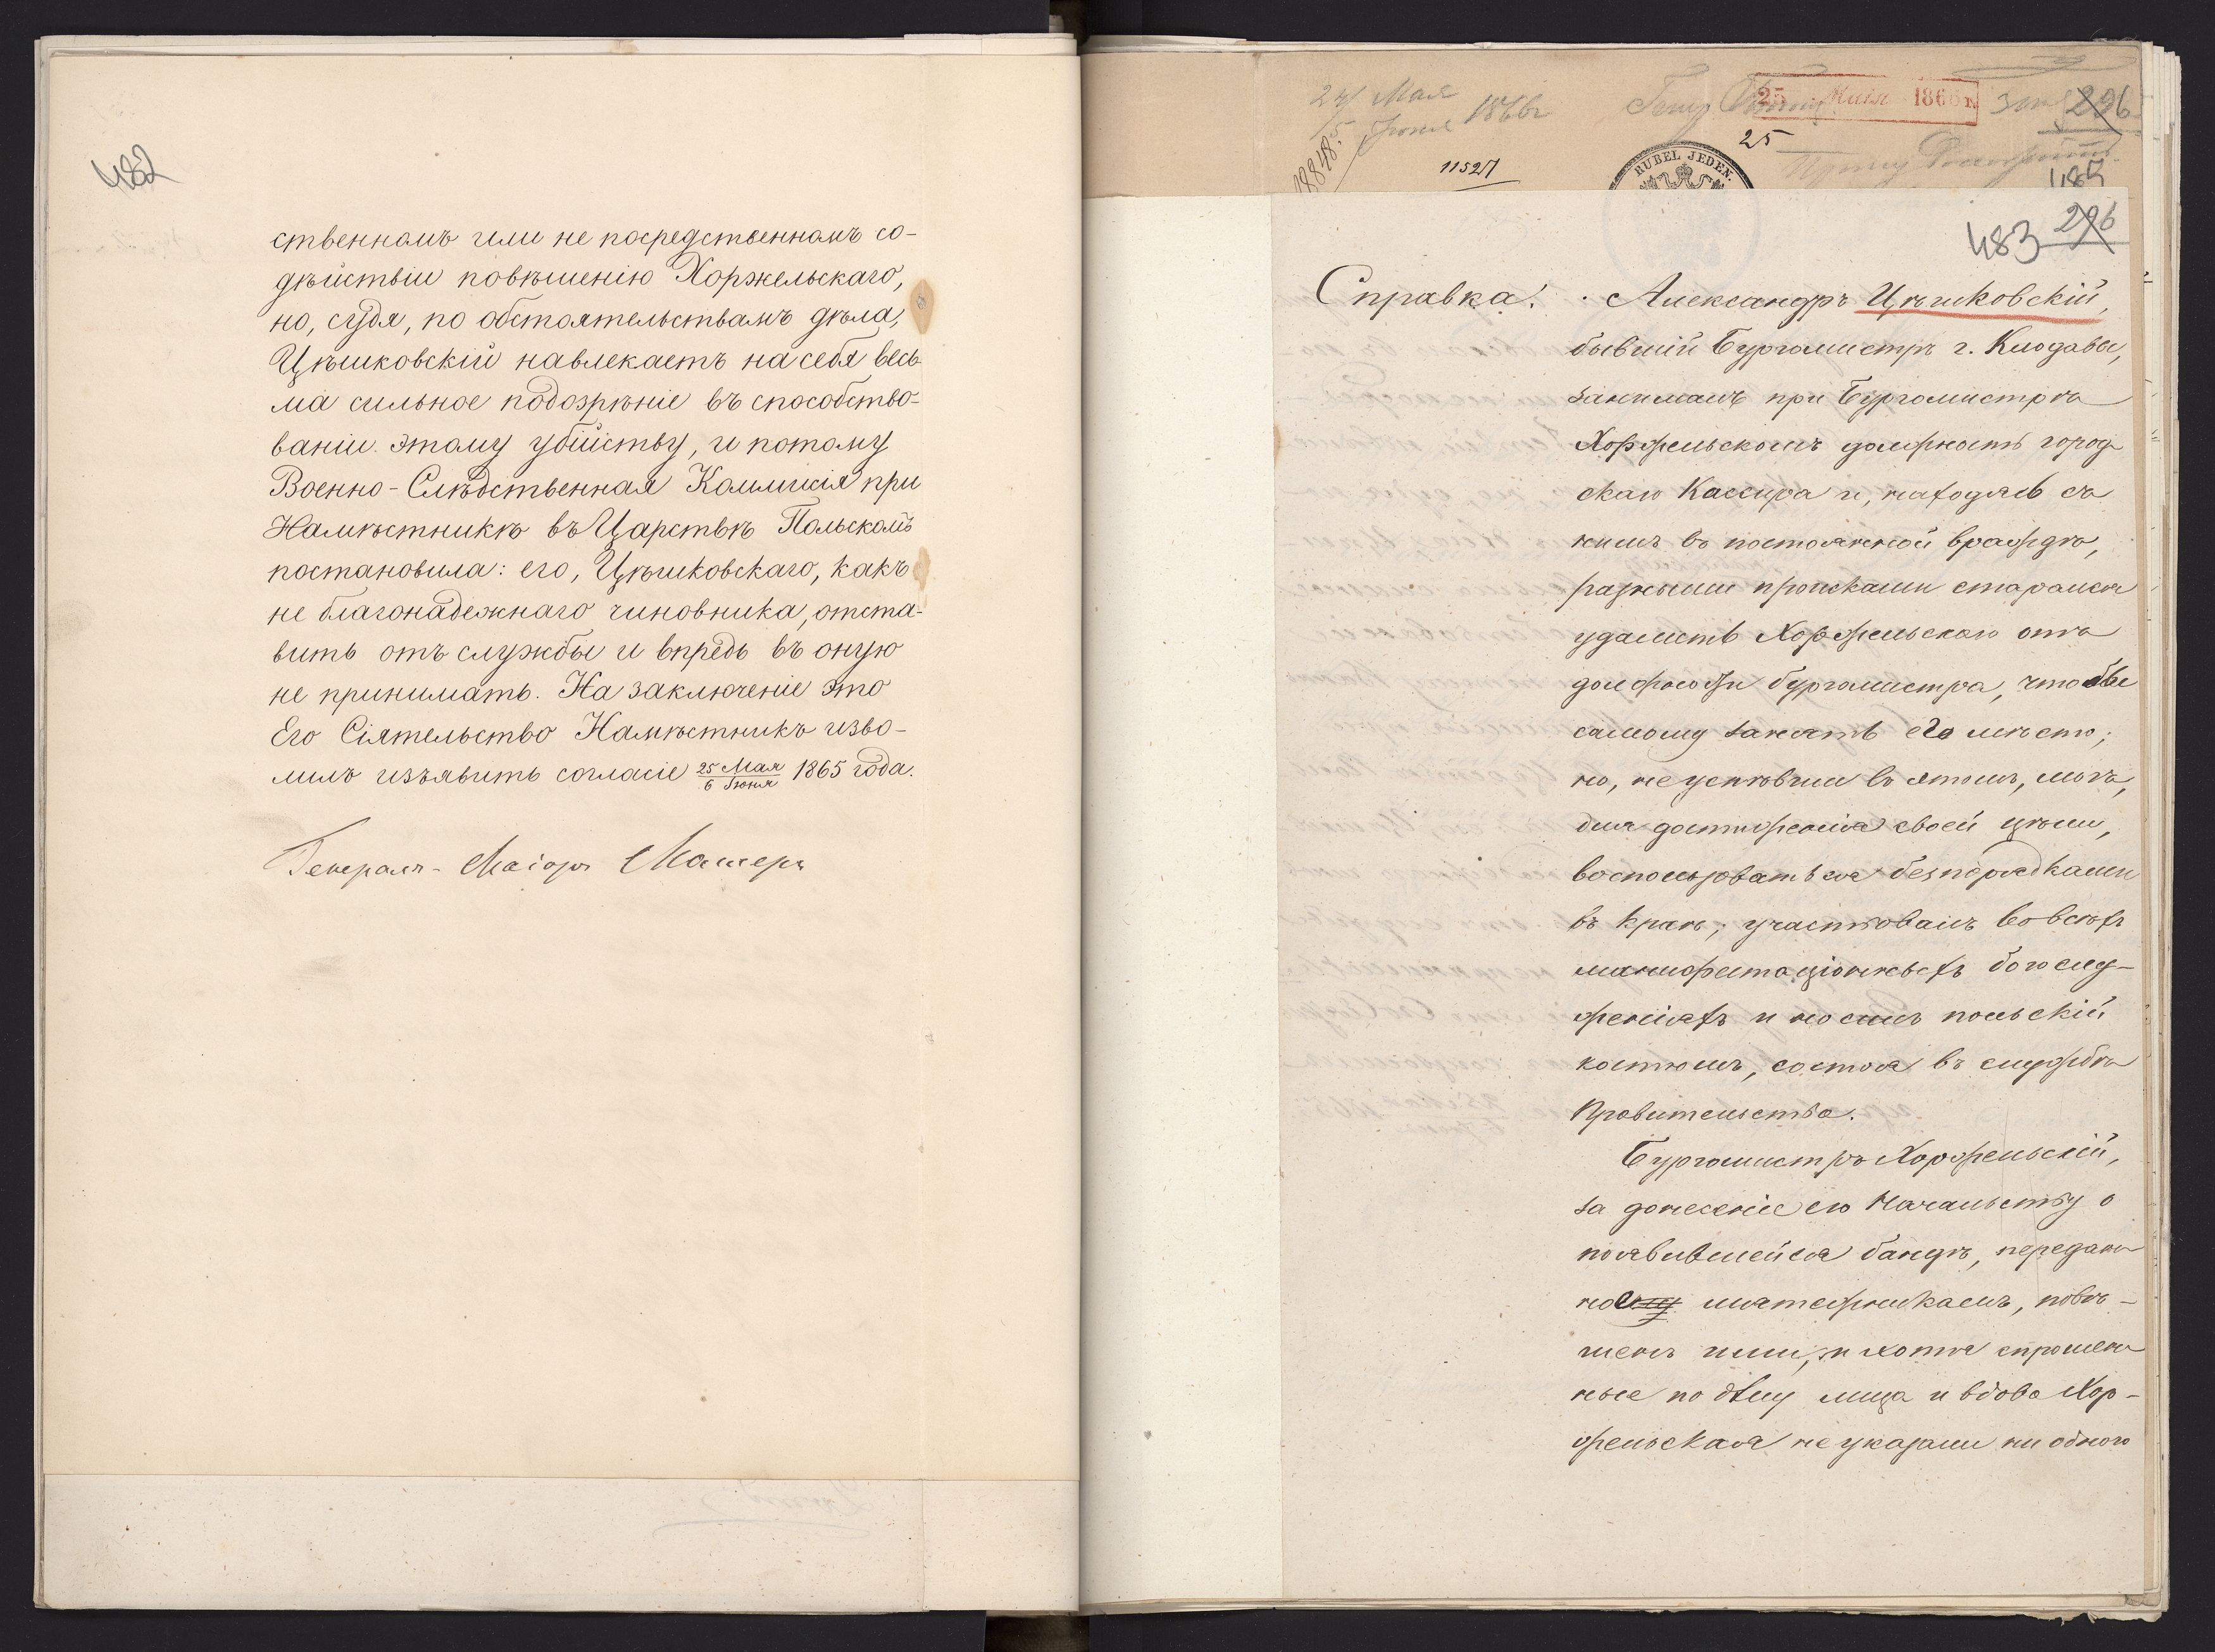 482
ственномъ или не посредственномъ со-
дѣйствіи повѣшенію Хоржельскаго,
но, судя, по обстоятельствамъ дѣла,
Цѣшковскій навлекаетъ на себя весь-
ма сильное подозрѣніе въ способство-
ваніи этому убійству, и потому
Военно-Слѣдственная Коммисія при
Намѣстникѣ въ Царствѣ Польскомъ
постановила: его, Цѣшковскаго, какъ
не благонадежнаго чиновника, отста-
вить отъ службы и впредь въ оную
не принимать. На заключеніе это
Его Сіятельство Намѣстникъ изво-
лилъ изъявить согласіе 25 Мая/6 Іюня 1865 года.
Генералъ-Маіоръ
24/5 Мая/Іюня 1866
25 Мая 1866 г.
296
25
11527
RUBEL JEDEN.
483 296
Справка. Александръ Цѣшковскій,
бывшій Бургомистръ г. Клодавы,
занималъ при Бургомистрѣ
Хоржельскомъ должность город
скаго Кассира и, находясь съ
нимъ въ постоянной враждѣ,
разными происками старался
удалить Хоржельскаго отъ
должности бургомистра, чтобы
самому занять его мѣсто;
но, не успѣвши въ этомъ, могъ,
для достиженія своей цѣли,
воспользоваться безпорядками
въ краѣ; участвовалъ во всѣхъ
манифестаціонныхъ богослу-
женіяхъ и носилъ польскій
костюмъ, состоя въ службѣ
Правительства.
Бургомистръ Хоржельскій,
за донесеніе его Начальству о
появившейся бандѣ, передан
но мятежникамъ, повѣ-
шенъ ими, и хотя спрошен
ные по дѣлу лица и вдова Хор-
жельская не указали ни одного